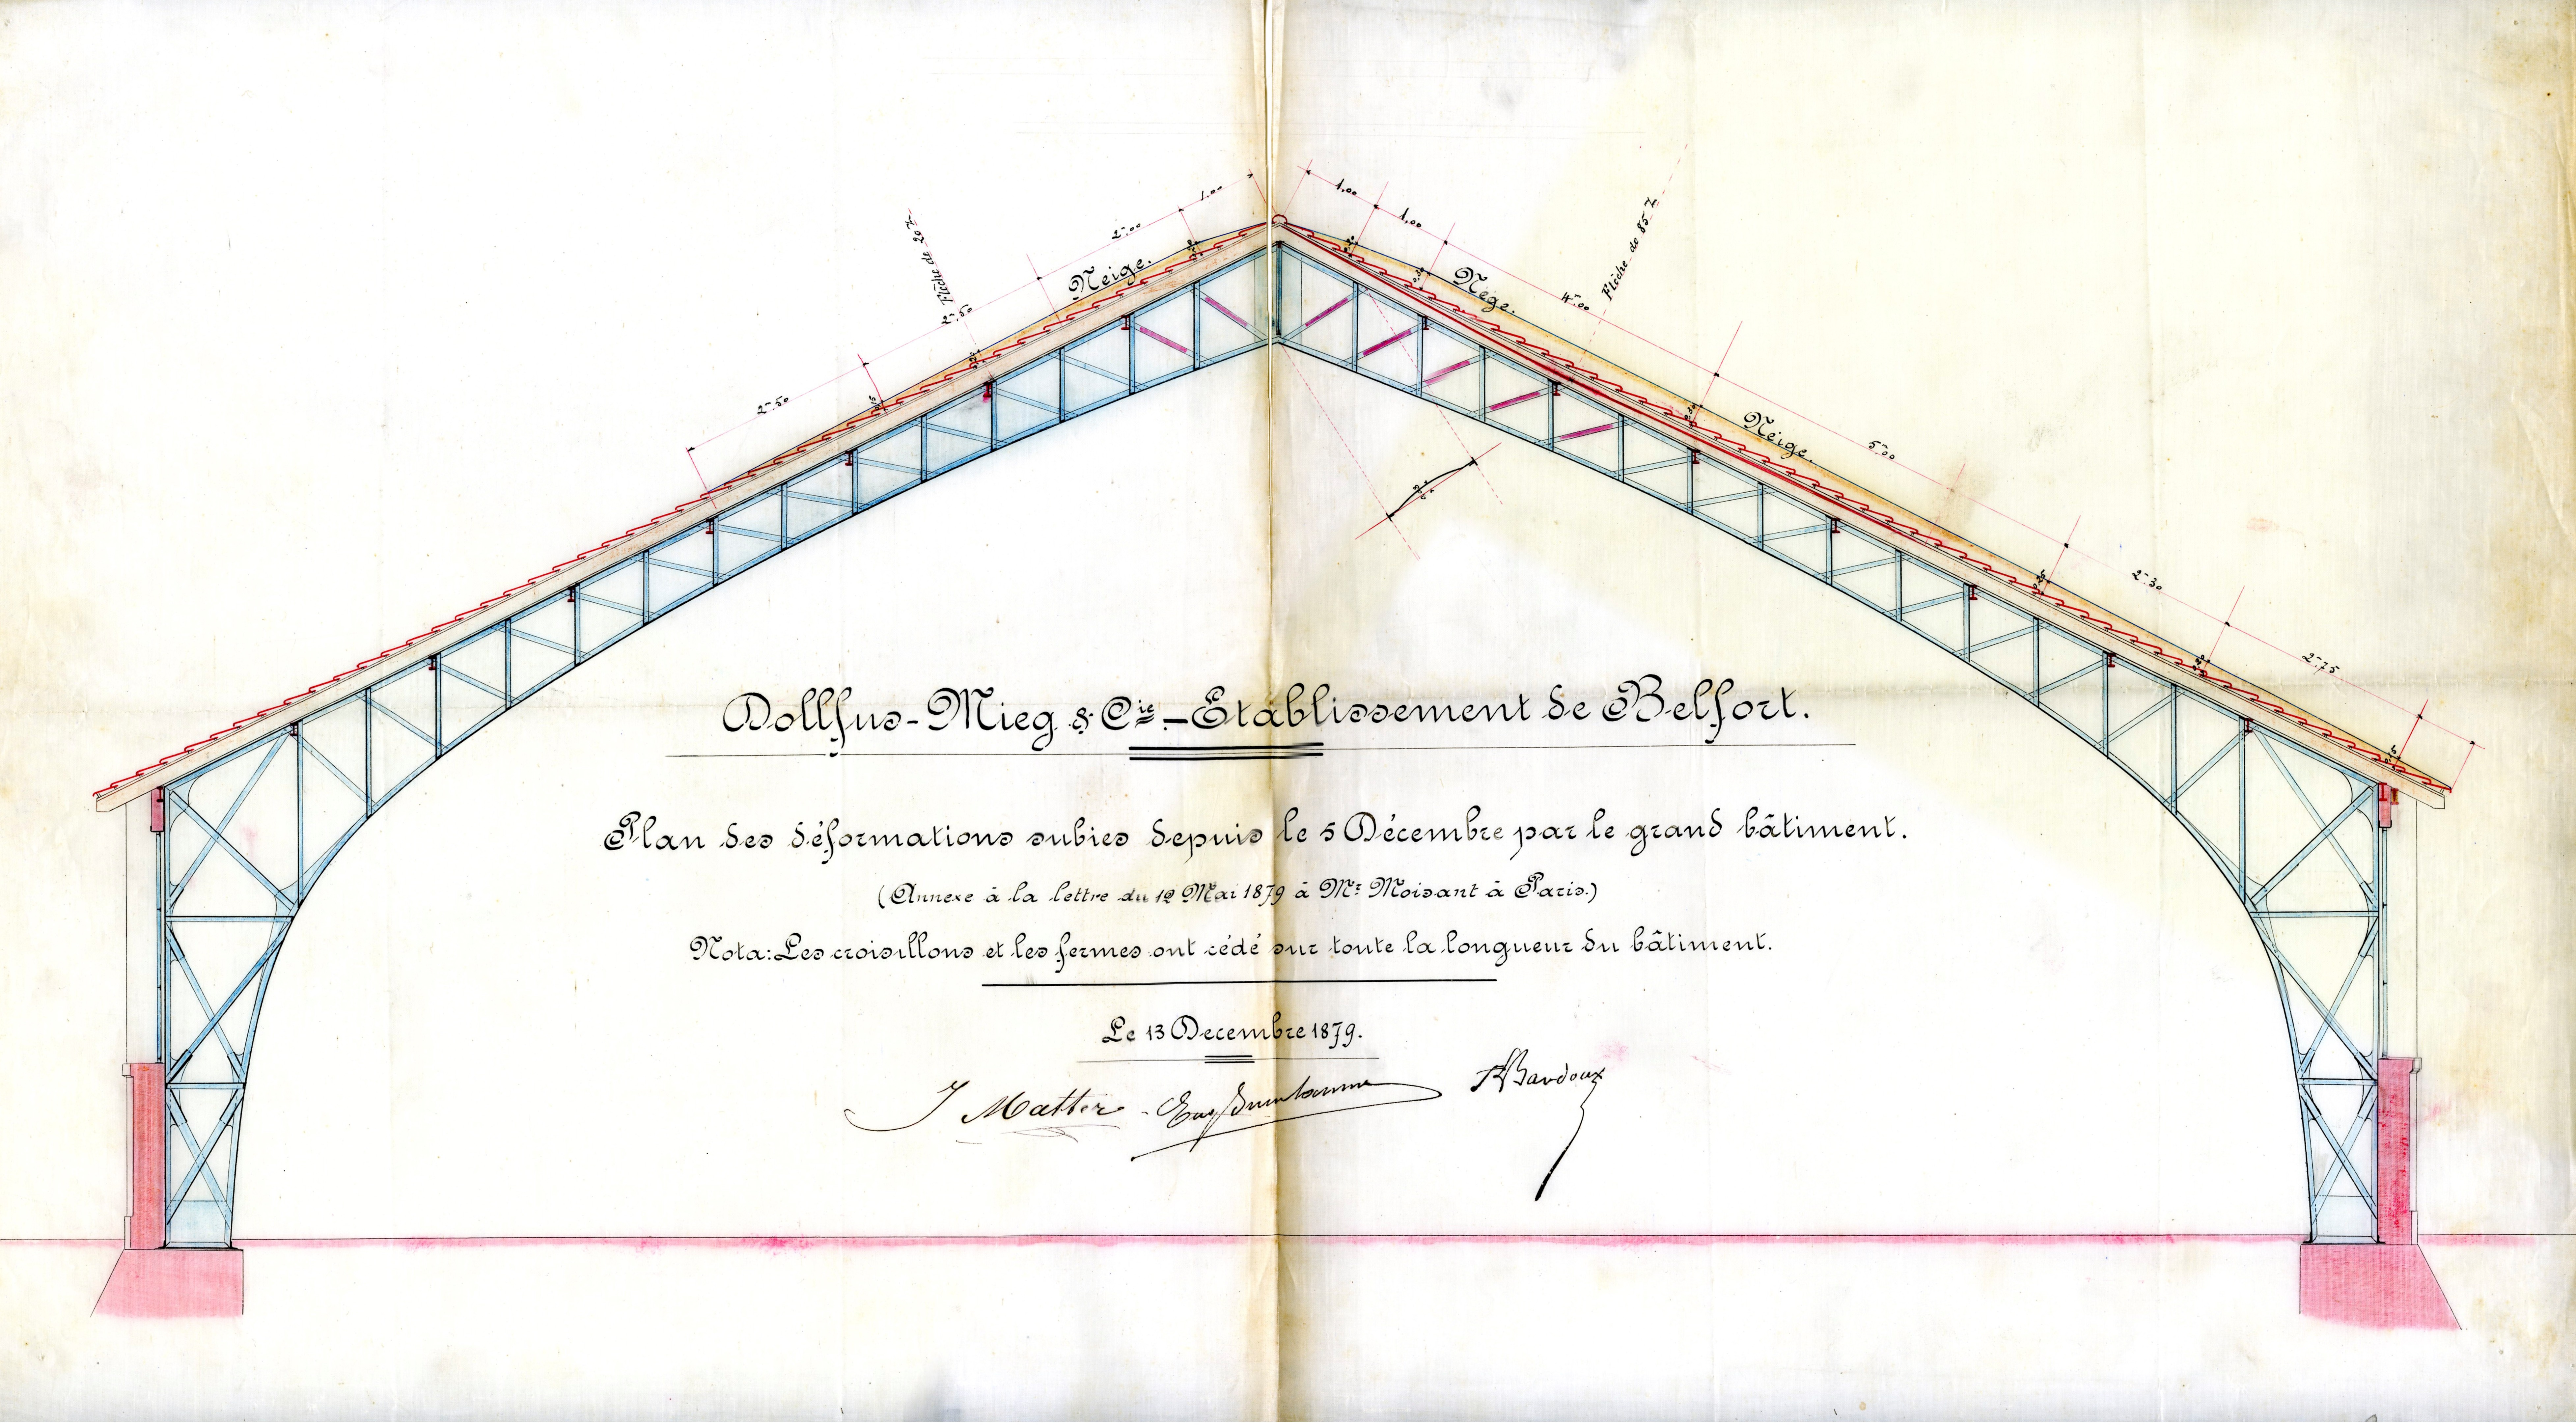 1.00
1,00
2m.00
1,00
Flèche de 20 %
Flèche de 85 %
Neige.
Nège.
4m.00
2m.50
2m.50
Neige.
5m.00
2m.30
2m.75
Dollfus-Mieg & Cie. - Etablissement de Belfort.
Plan des déformations subies depuis le 5 Décembre par le grand bâtiment.
(Annexe à la lettre du 12 Mai 1879 à Mr Moisant à Paris.)
Nota: Les croisillons et les fermes ont cédé sur toute la longueur du bâtiment.
Le 13 Decembre 1879.
J Matter